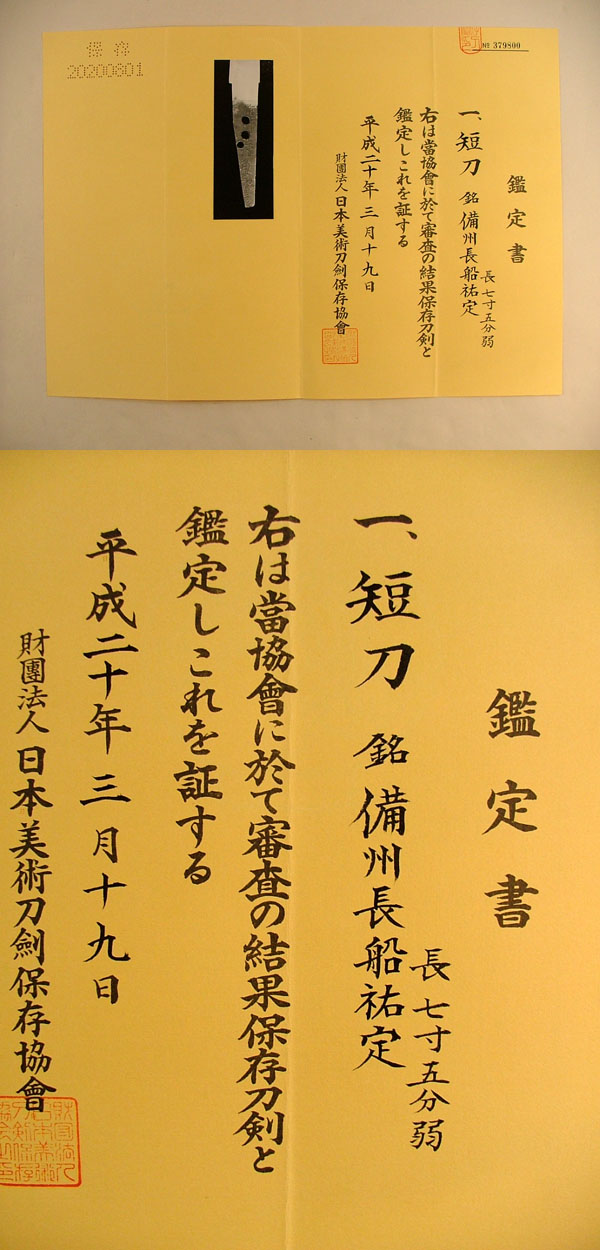 保存
20200601
№ 379800
鑑定書
一、短刀 銘 備州長船祐定
長七寸五分弱
右は當協會に於て審査の結果保存刀剣と
鑑定しこれを証する
平成二十年三月十九日
財團法人日本美術刀劍保存協會
鑑定書
一、短刀 銘 備州長船祐定
長七寸五分弱
右は當協會に於て審査の結果保存刀剣と
鑑定しこれを証する
平成二十年三月十九日
財團法人日本美術刀劍保存協會